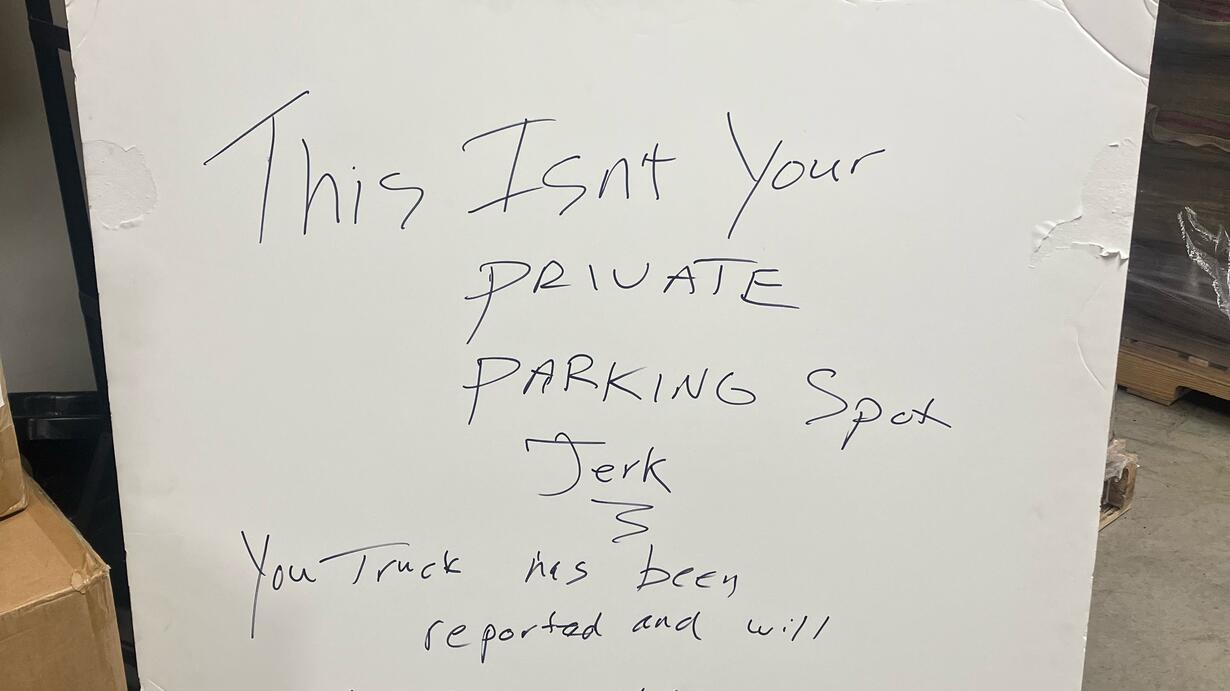 This Isnt Your
PRIVATE
PARKING Spot
Jerk
You Truck has been
reported and will